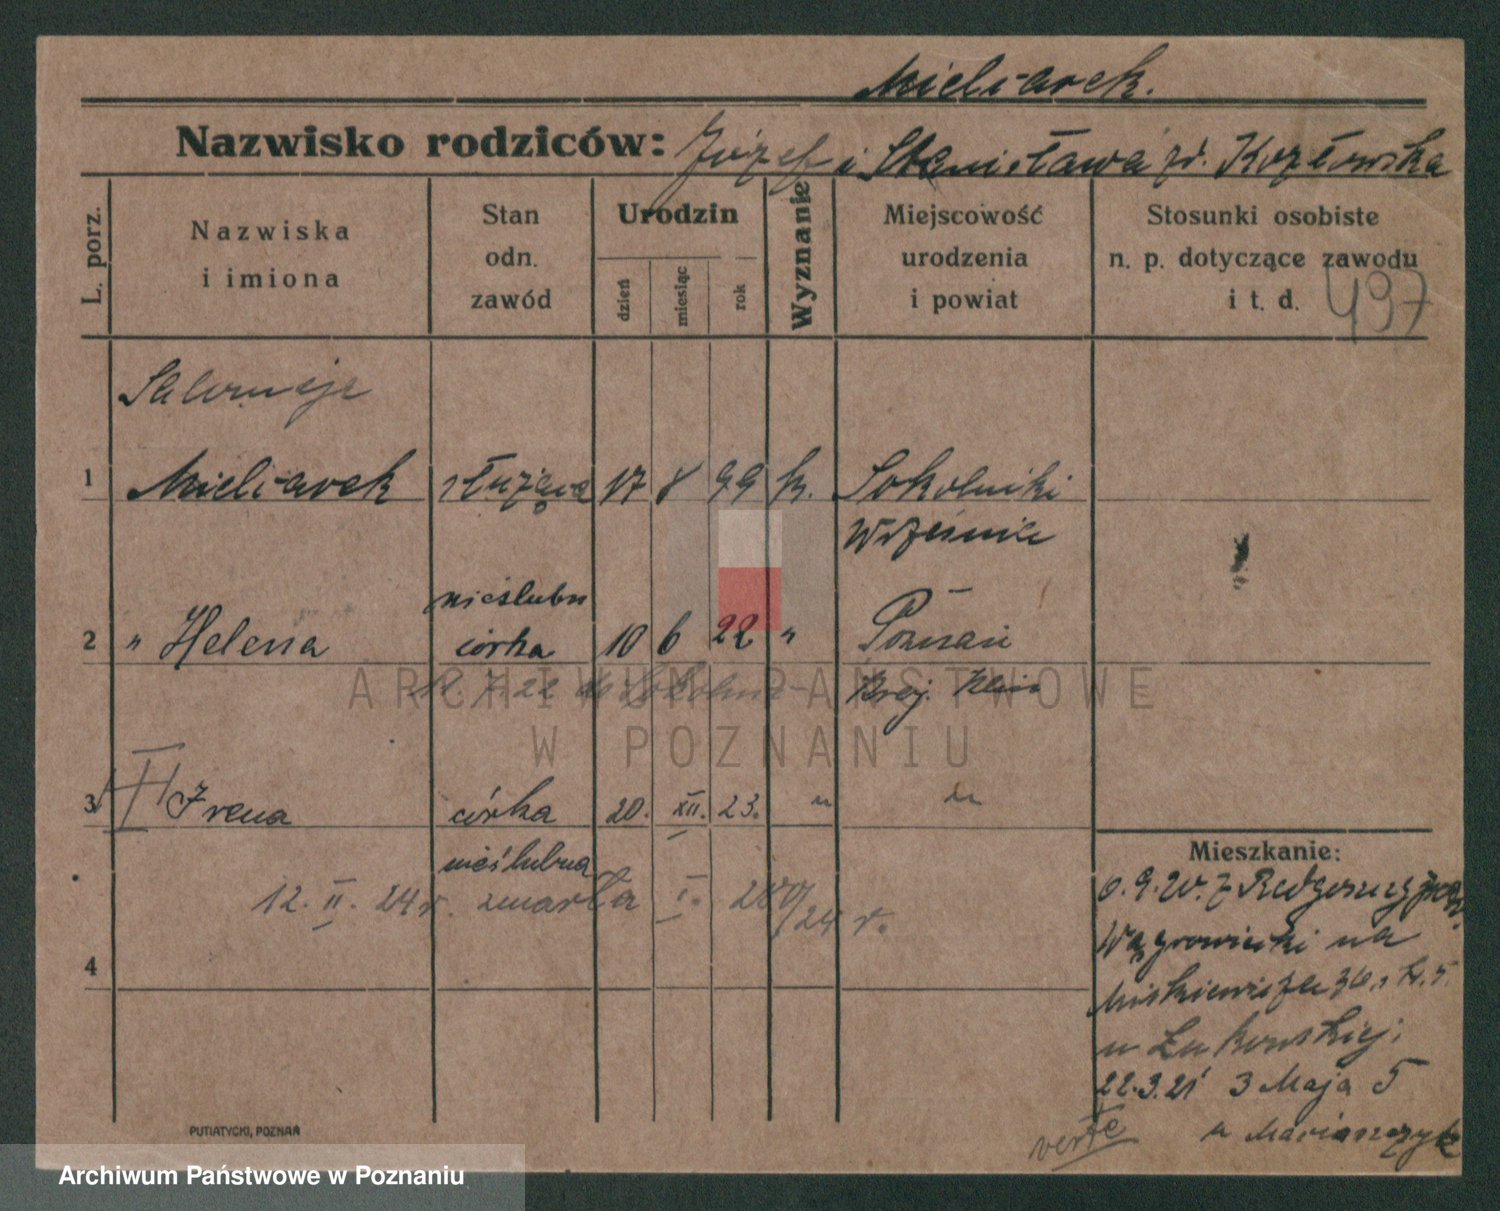 Mielcarek.
Nazwisko rodziców: Józef i Stanisława zd. Kozłowska
L. porz.
Nazwiska
i imiona
Stan
odn.
zawód
Urodzin
dzień
miesiąc
rok
Wyznanie
Miejscowość
urodzenia
i powiat
Stosunki osobiste
n. p. dotyczące zawodu
i t. d.
497
Salomeja
1 Mielcarek służąca 17 8 99 k. Sokolniki
Września
nieślubn
2 " Helena córka 10 6 22 " Poznań
7. 22 do
3 Irena córka 20. XII. 23. "
nieślubna
12. II. 24 r. zmarła I. 24 r.
4
Mieszkanie:
6.9.20. z
Wągrowiecki na
u Łukowskiej;
22.3.21 3 Maja 5
u Marianczyk
verte
PUTIATYCKI, POZNAŃ
ARCHIWUM PAŃSTWOWE
W POZNANIU
Archiwum Państwowe w Poznaniu